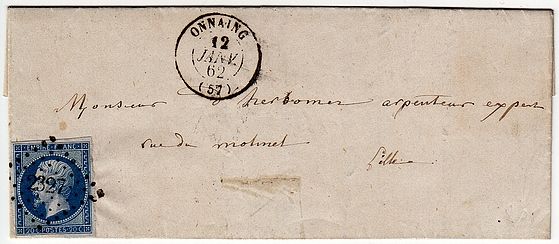 ONNAING
12
JANV.
62
(57)
Monsieur D'herbomez arpenteur expert
rue du molinel
Lille
EMPIRE FRANC
2327
20 C POSTES 20 C